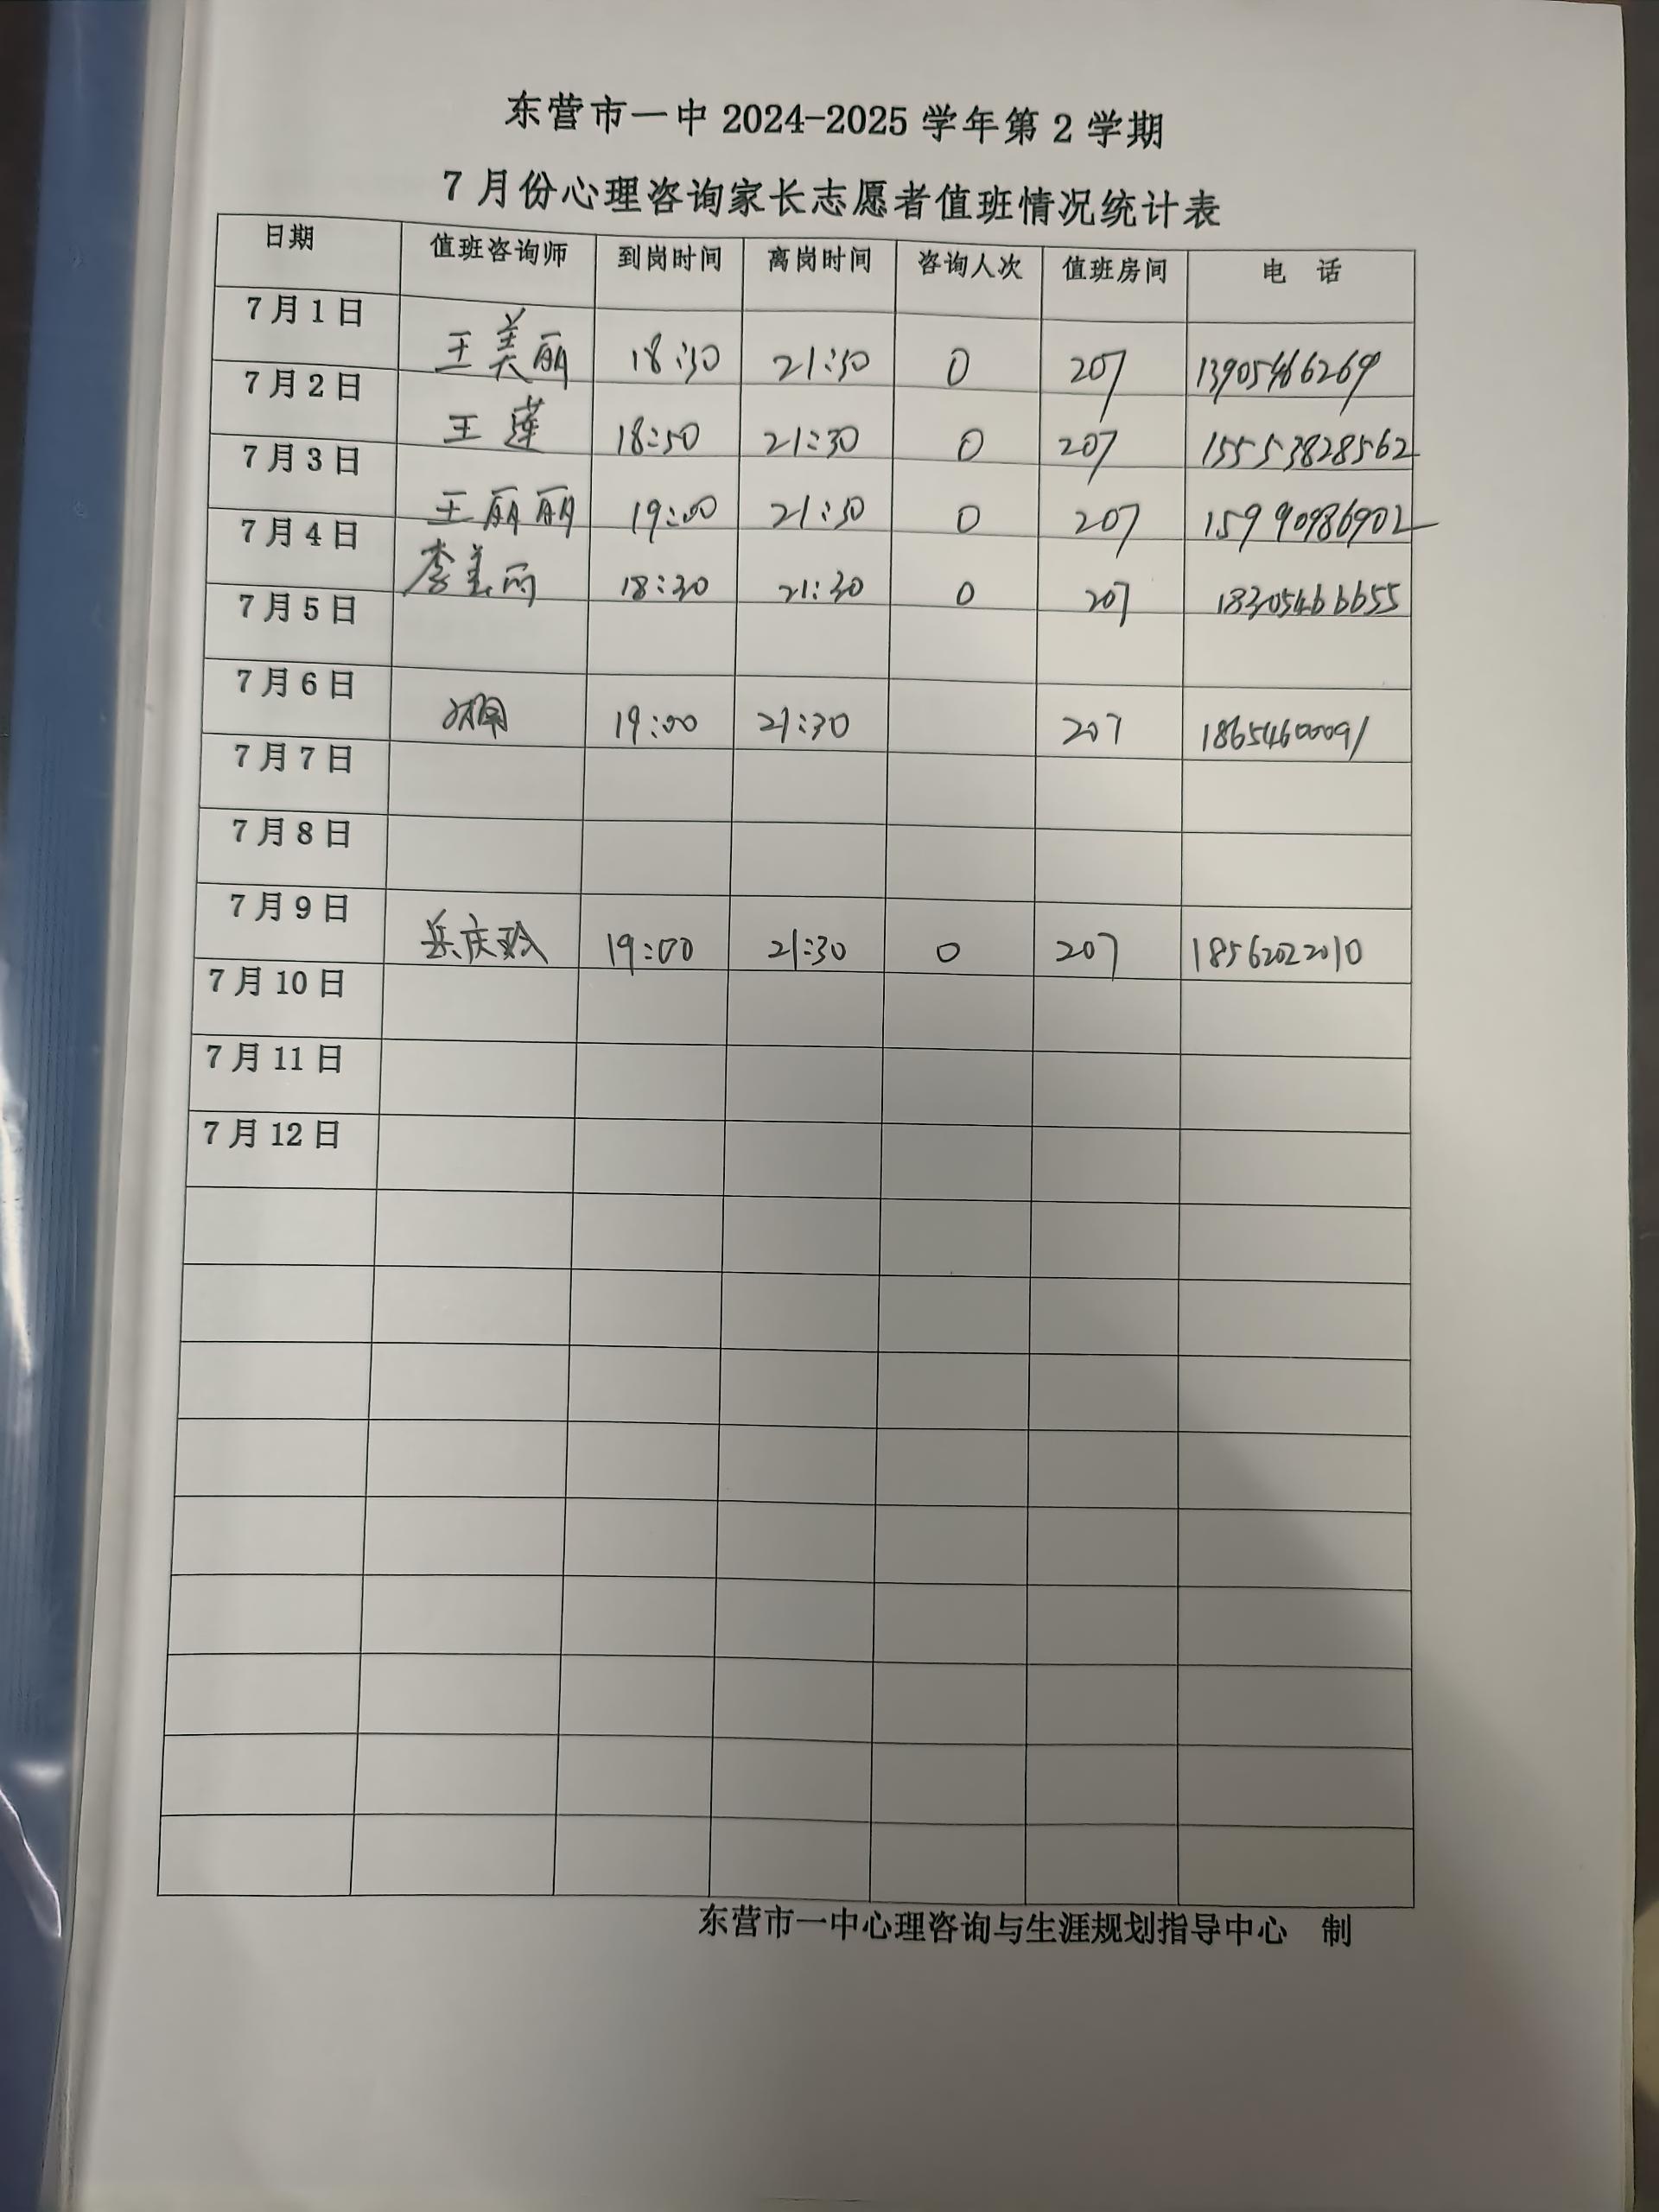 东营市一中 2024-2025 学年第 2 学期
7 月份心理咨询家长志愿者值班情况统计表
日期 值班咨询师 到岗时间 离岗时间 咨询人次 值班房间 电 话
7 月 1 日 王美丽 18:30 21:30 0 207 13905466269
7 月 2 日 王莲 18:50 21:30 0 207 15553828562
7 月 3 日 王丽丽 19:00 21:30 0 207 15990986902
7 月 4 日 李美丽 18:30 21:30 0 207 18305466655
7 月 5 日
7 月 6 日 19:00 21:30 207 18654600091
7 月 7 日
7 月 8 日
7 月 9 日 岳庆玲 19:00 21:30 0 207 18562022010
7 月 10 日
7 月 11 日
7 月 12 日
东营市一中心理咨询与生涯规划指导中心 制